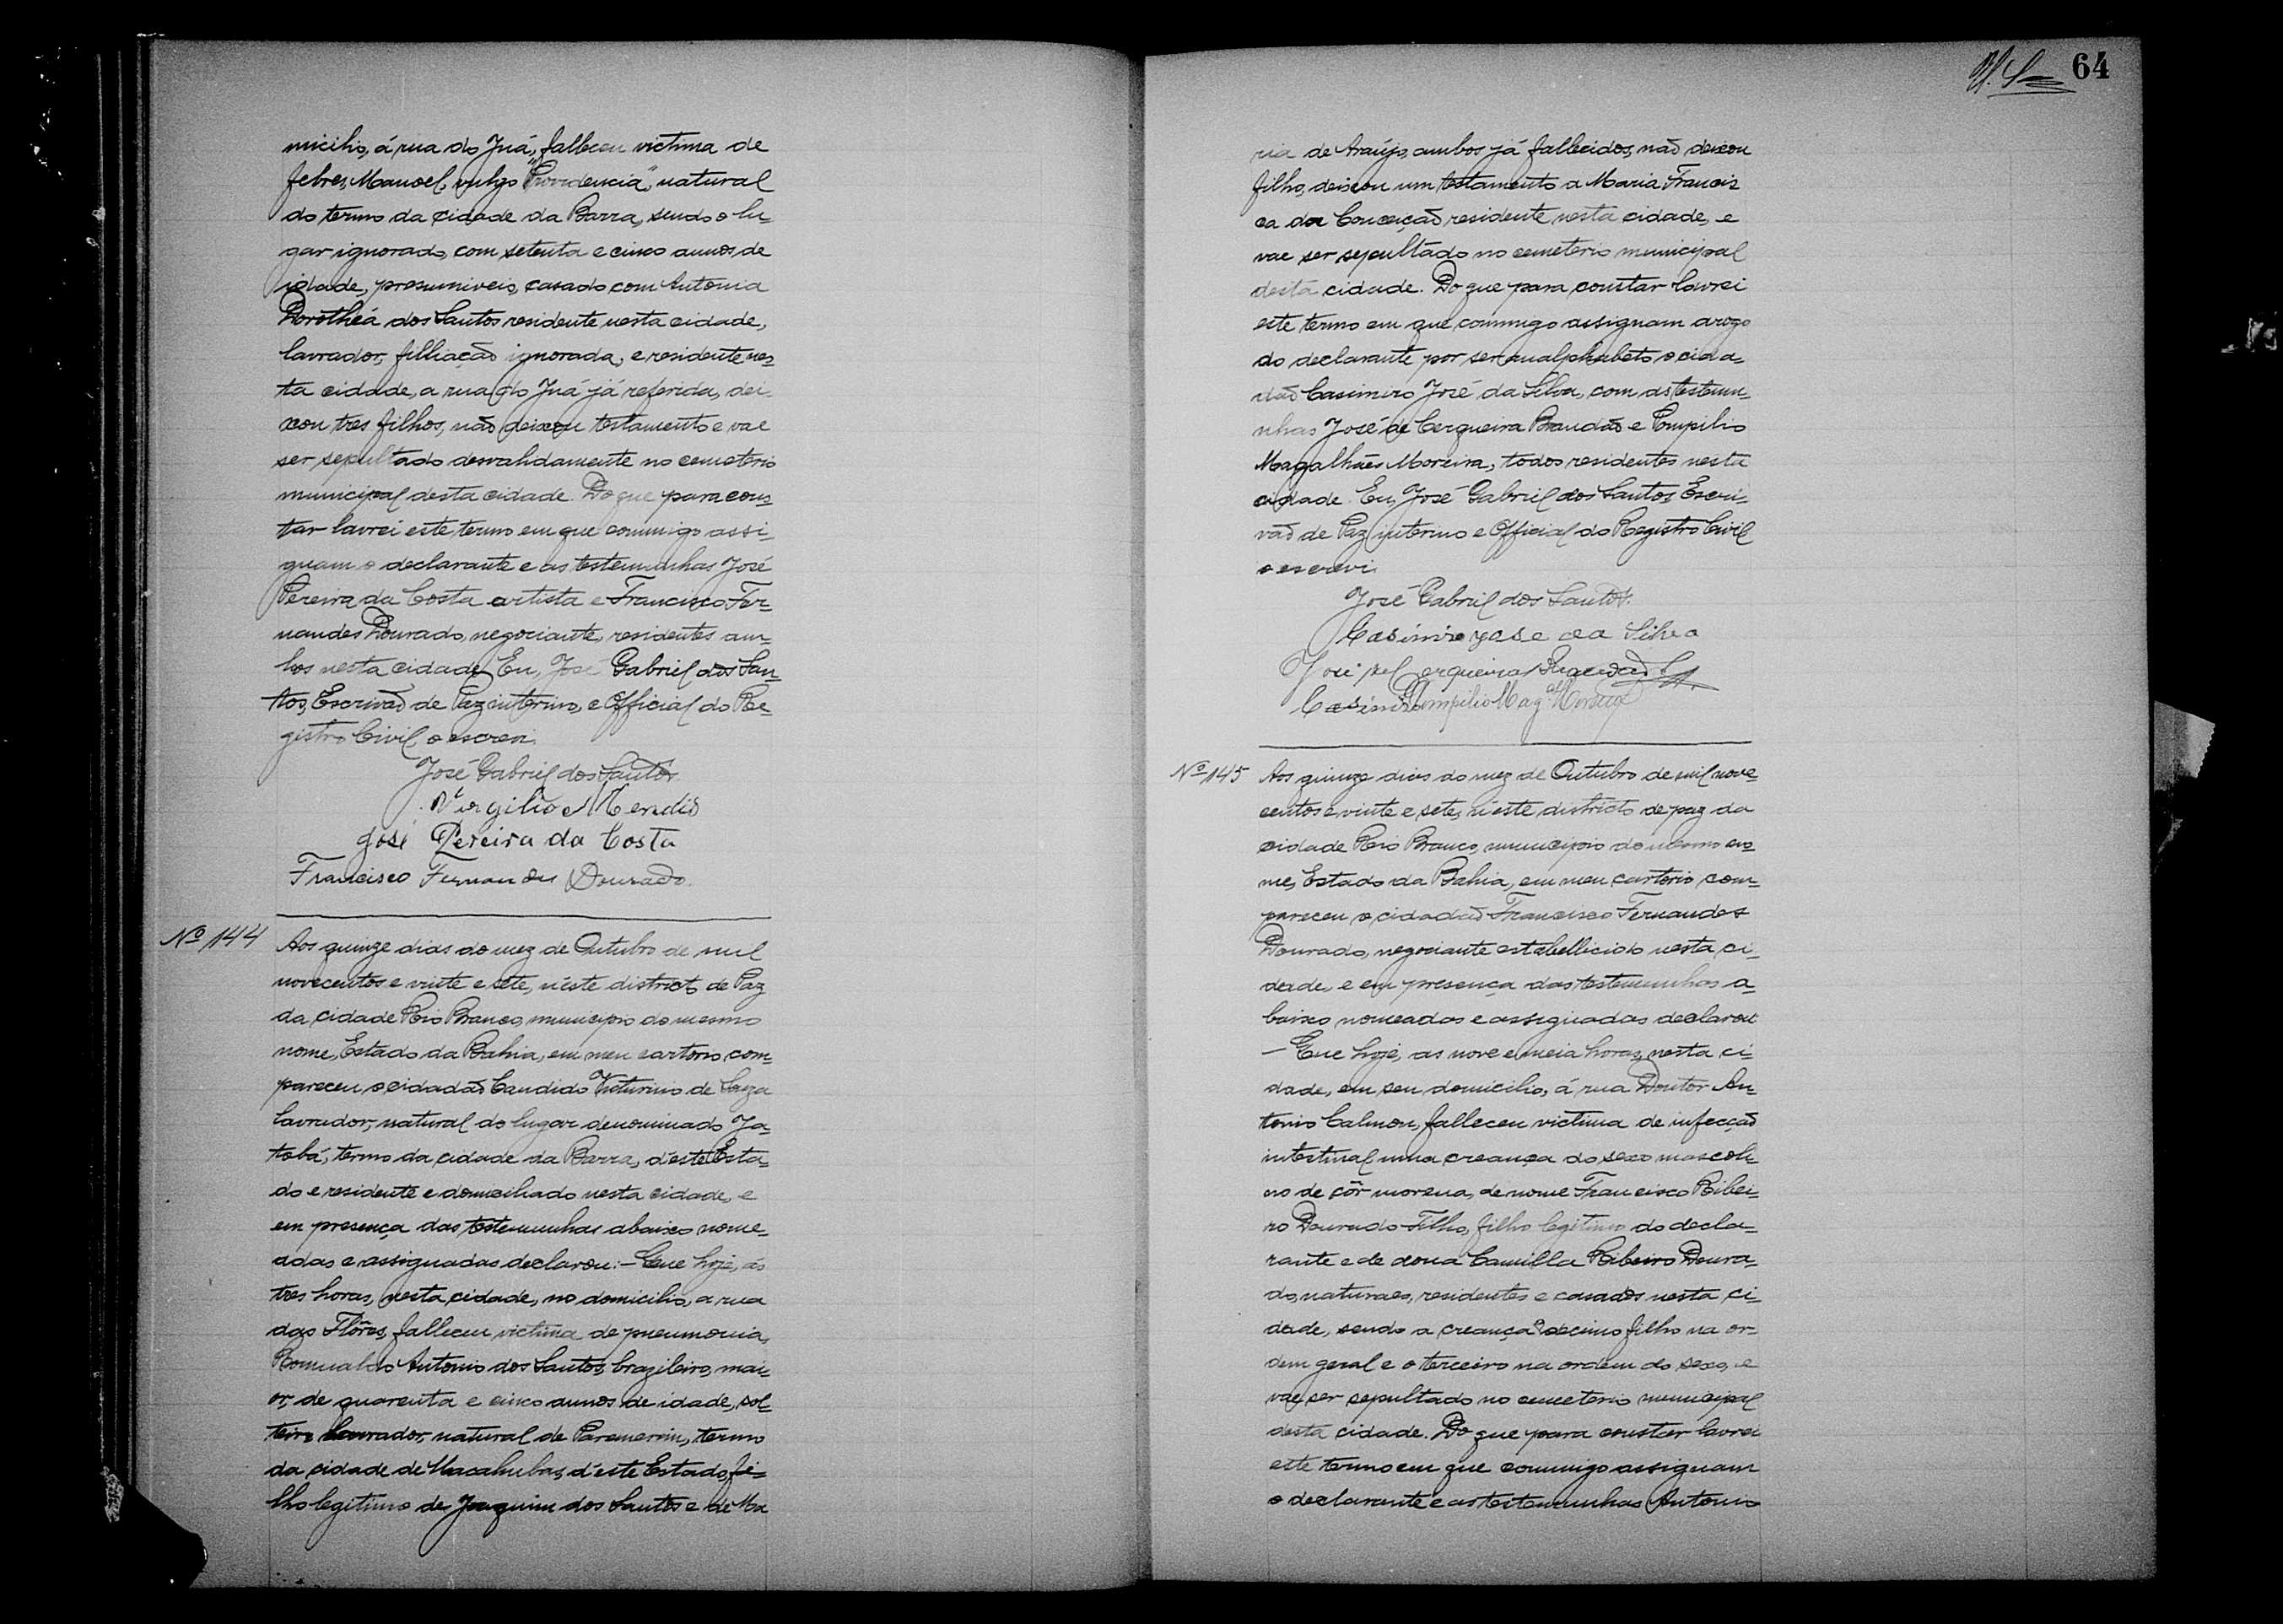 micilio, á rua do Juá, falleceu victima de
febres, Manoel, vulgo "Providencia", natural
do termo da cidade da Barra, sendo o lu-
gar ignorado, com setenta e cinco annos de
idade, presumiveis, casado com Antonia
Dorothéa dos Santos residente nesta cidade,
lavrador, filliação ignorada, e residente nes-
ta cidade, a rua do Juá já referida, dei-
xou tres filhos, não deixou testamento e vae
ser sepultado desvalidamente no cemeterio
municipal desta cidade. Do que para cons-
tar lavrei este termo em que commigo assi-
gnam o declarante e as testemunhas José
Pereira da Costa artista e Francisco Fer-
nandes Dourado, negociante, residentes am-
bos nesta cidade. Eu, José Gabriel dos San-
tos, Escrivão de Paz interino, e Official do Re-
gistro Civil o escrevi.
José Gabriel dos Santos
Virgilio Mendes
José Pereira da Costa
Francisco Fernandes Dourado.
Nº 144 Aos quinze dias do mez de Outubro de mil
novecentos e vinte e sete, n'éste districto de Paz
da cidade Rio Branco, municipio do mesmo
nome, Estado da Bahia, em meu cartorio com-
pareceu o cidadão Candido Victurino de Souza
lavrador, natural do lugar denominado Ja-
tobá, termo da cidade da Barra, d'este Esta-
do e residente e domiciliado nesta cidade, e
em presença das testemunhas abaixo nome-
adas e assignadas declarou:- Que hoje, ás
tres horas, nesta cidade, no domicilio, a rua
das Flôres, falleceu victima de pneumonia,
Romualdo Antonio dos Santos, brazileiro, mai-
or, de quarenta e cinco annos de idade, sol-
teiro lavrador, natural de Paramerim, termo
da cidade de Macahubas, d'éste Estado, fi-
lho legitimo de Joaquim dos Santos e de Ma
64
ria de Araújo, ambos já fallecidos, não deixou
filho, deixou um testamento a Maria Francis
ca da Conceição residente nesta cidade, e
vae ser sepultádo no cemeterio municipal
desta cidade. Do que para constar lavrei
este termo em que commigo assignam arogo
do declarante por ser analphabeto o cida-
dão Casimiro José da Silva, com as testemu-
nhas José de Cerqueira Brandão e Pompilio
Magalhães Moreira, todos residentes nesta
cidade. Eu, José Gabriel dos Santos, Escri-
vão de Paz interino e Official do Registro Civil
o escrevi.
José Gabriel dos Santos.
Casimiro jose da Silva
José de Cerqueira Brandão
Casimiro Pompilio Mag.es Moreira
Nº 145 Aos quinze dias do mez de Outubro de mil nove-
centos e vinte e sete, n'éste districto de paz da
cidade Rio Branco, municipio do mesmo no-
me, Estado da Bahia, em meu cartorio com-
pareceu o cidadão Francisco Fernandes
Dourado, negociante estabellicido nesta ci-
dade, e em presença das testemunhas a-
baixo nomeadas e assignadas declarou
- Que hoje, as nove e meia horas, nesta ci-
dade, em seu domicilio, á rua Doutor An-
tonio Calmon, falleceu victima de infecção
intestinal uma creança do sexo mascoli-
no de côr morena, de nome Francisco Ribei-
ro Dourado Filho, filho legitimo do decla-
rante e de dona Camilla Ribeiro Doura-
do, naturaes, residentes e casados nesta ci-
dade, sendo a creança o decimo filho na or-
dem geral e o terceiro na ordem do sexo, e
vae ser sepultado no cemeterio municipal
desta cidade. Do que para constar lavrei
este termo em que commigo assignam
o declarante e as testemunhas Antonio